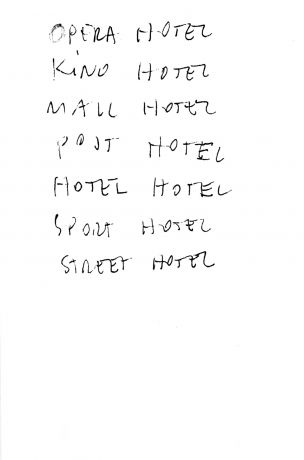 OPERA HOTEL
KINO HOTEL
MALL HOTEL
POST HOTEL
HOTEL HOTEL
SPORT HOTEL
STREET HOTEL